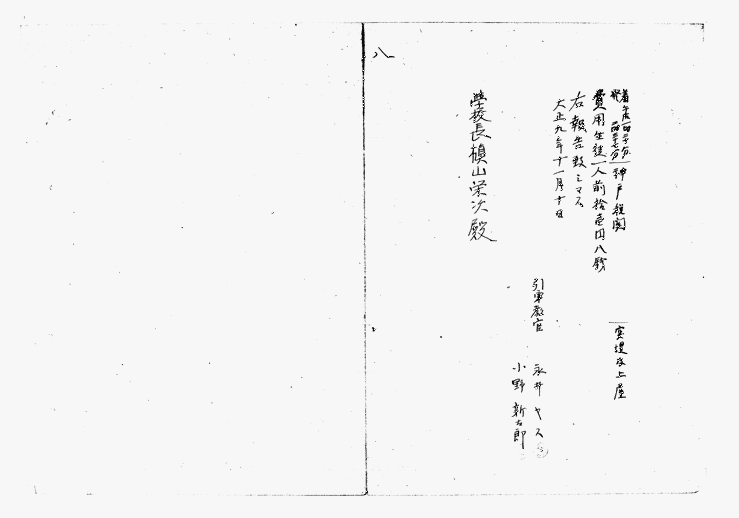 八
神戸税関
費用生徒一人前拾壱円八銭
右報告致シマス
大正九年十一月十日
引率教官
永井ヤス
小野新太郎
學校長槇山栄次殿